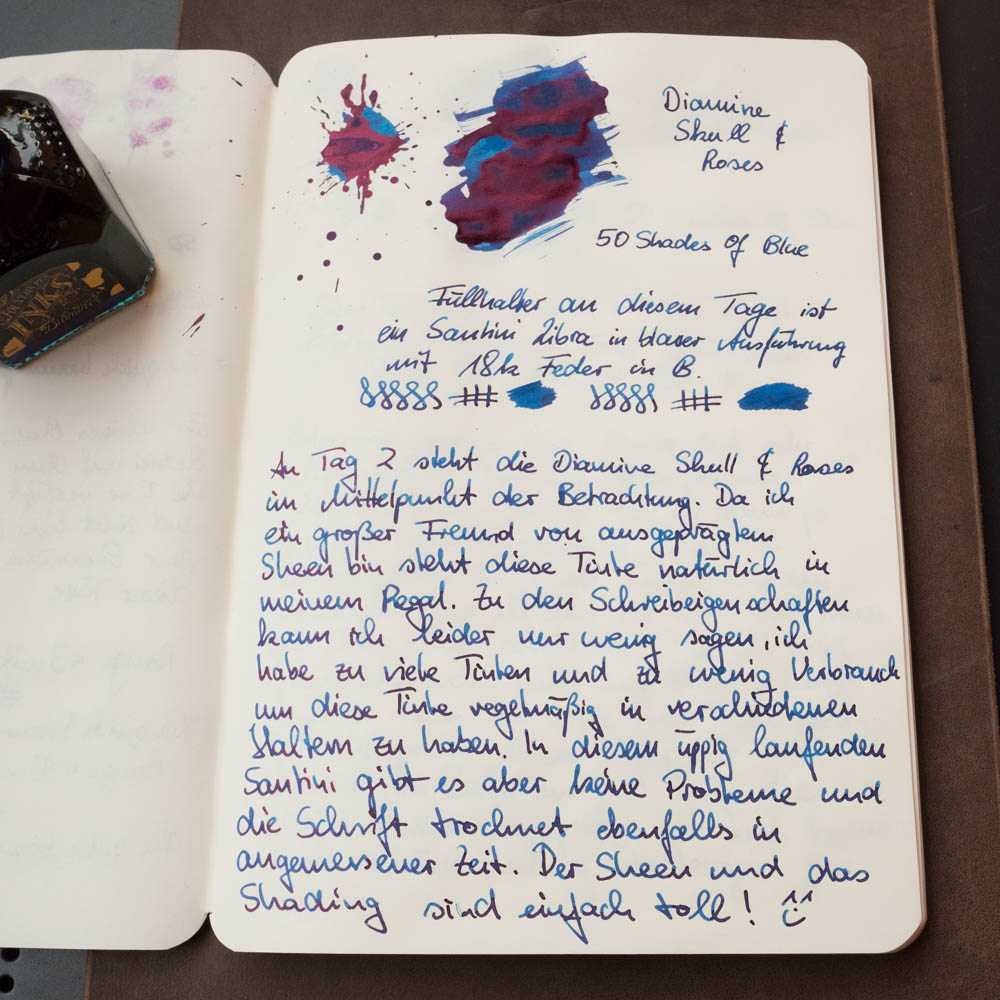 Diamine
Skull &
Roses
50 Shades Of Blue
Füllhalter an diesem Tage ist
ein Santini Libra in blauer Ausführung
mit 18k Feder in B.
An Tag 2 steht die Diamine Skull & Roses
im Mittelpunkt der Betrachtung. Da ich
ein großer Freund von ausgeprägtem
Sheen bin steht diese Tinte natürlich in
meinem Regal. Zu den Schreibeigenschaften
kann ich leider nur wenig sagen, ich
habe zu viele Tinten und zu wenig Verbrauch
um diese Tinte regelmäßig in verschiedenen
Haltern zu haben. In diesem üppig laufenden
Santini gibt es aber keine Probleme und
die Schrift trocknet ebenfalls in
angemessener Zeit. Der Sheen und das
Shading sind einfach toll!
INKS
Diamine